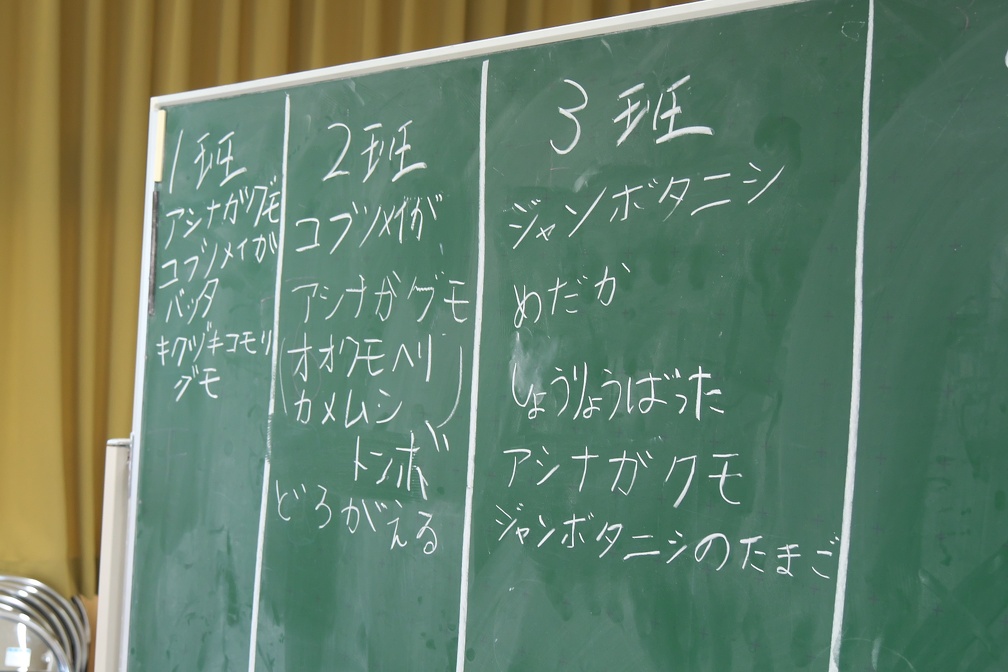 1班
アシナガグモ
コブノメイガ
バッタ
キクヅキコモリ
グモ
2班
コブノメイガ
アシナガグモ
(オオクモヘリ
カメムシ)
トンボ
どろがえる
3班
ジャンボタニシ
めだか
しょうりょうばった
アシナガクモ
ジャンボタニシのたまご